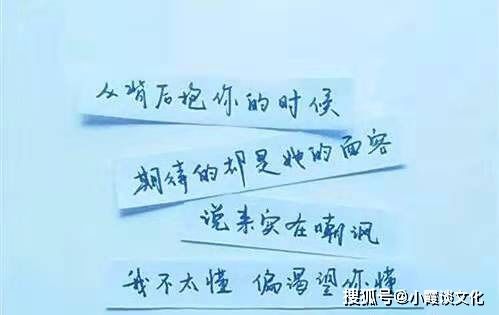 从背后抱你的时候
期待的却是她的面容
说来实在嘲讽
我不太懂 偏渴望你懂
搜狐号@小霞谈文化